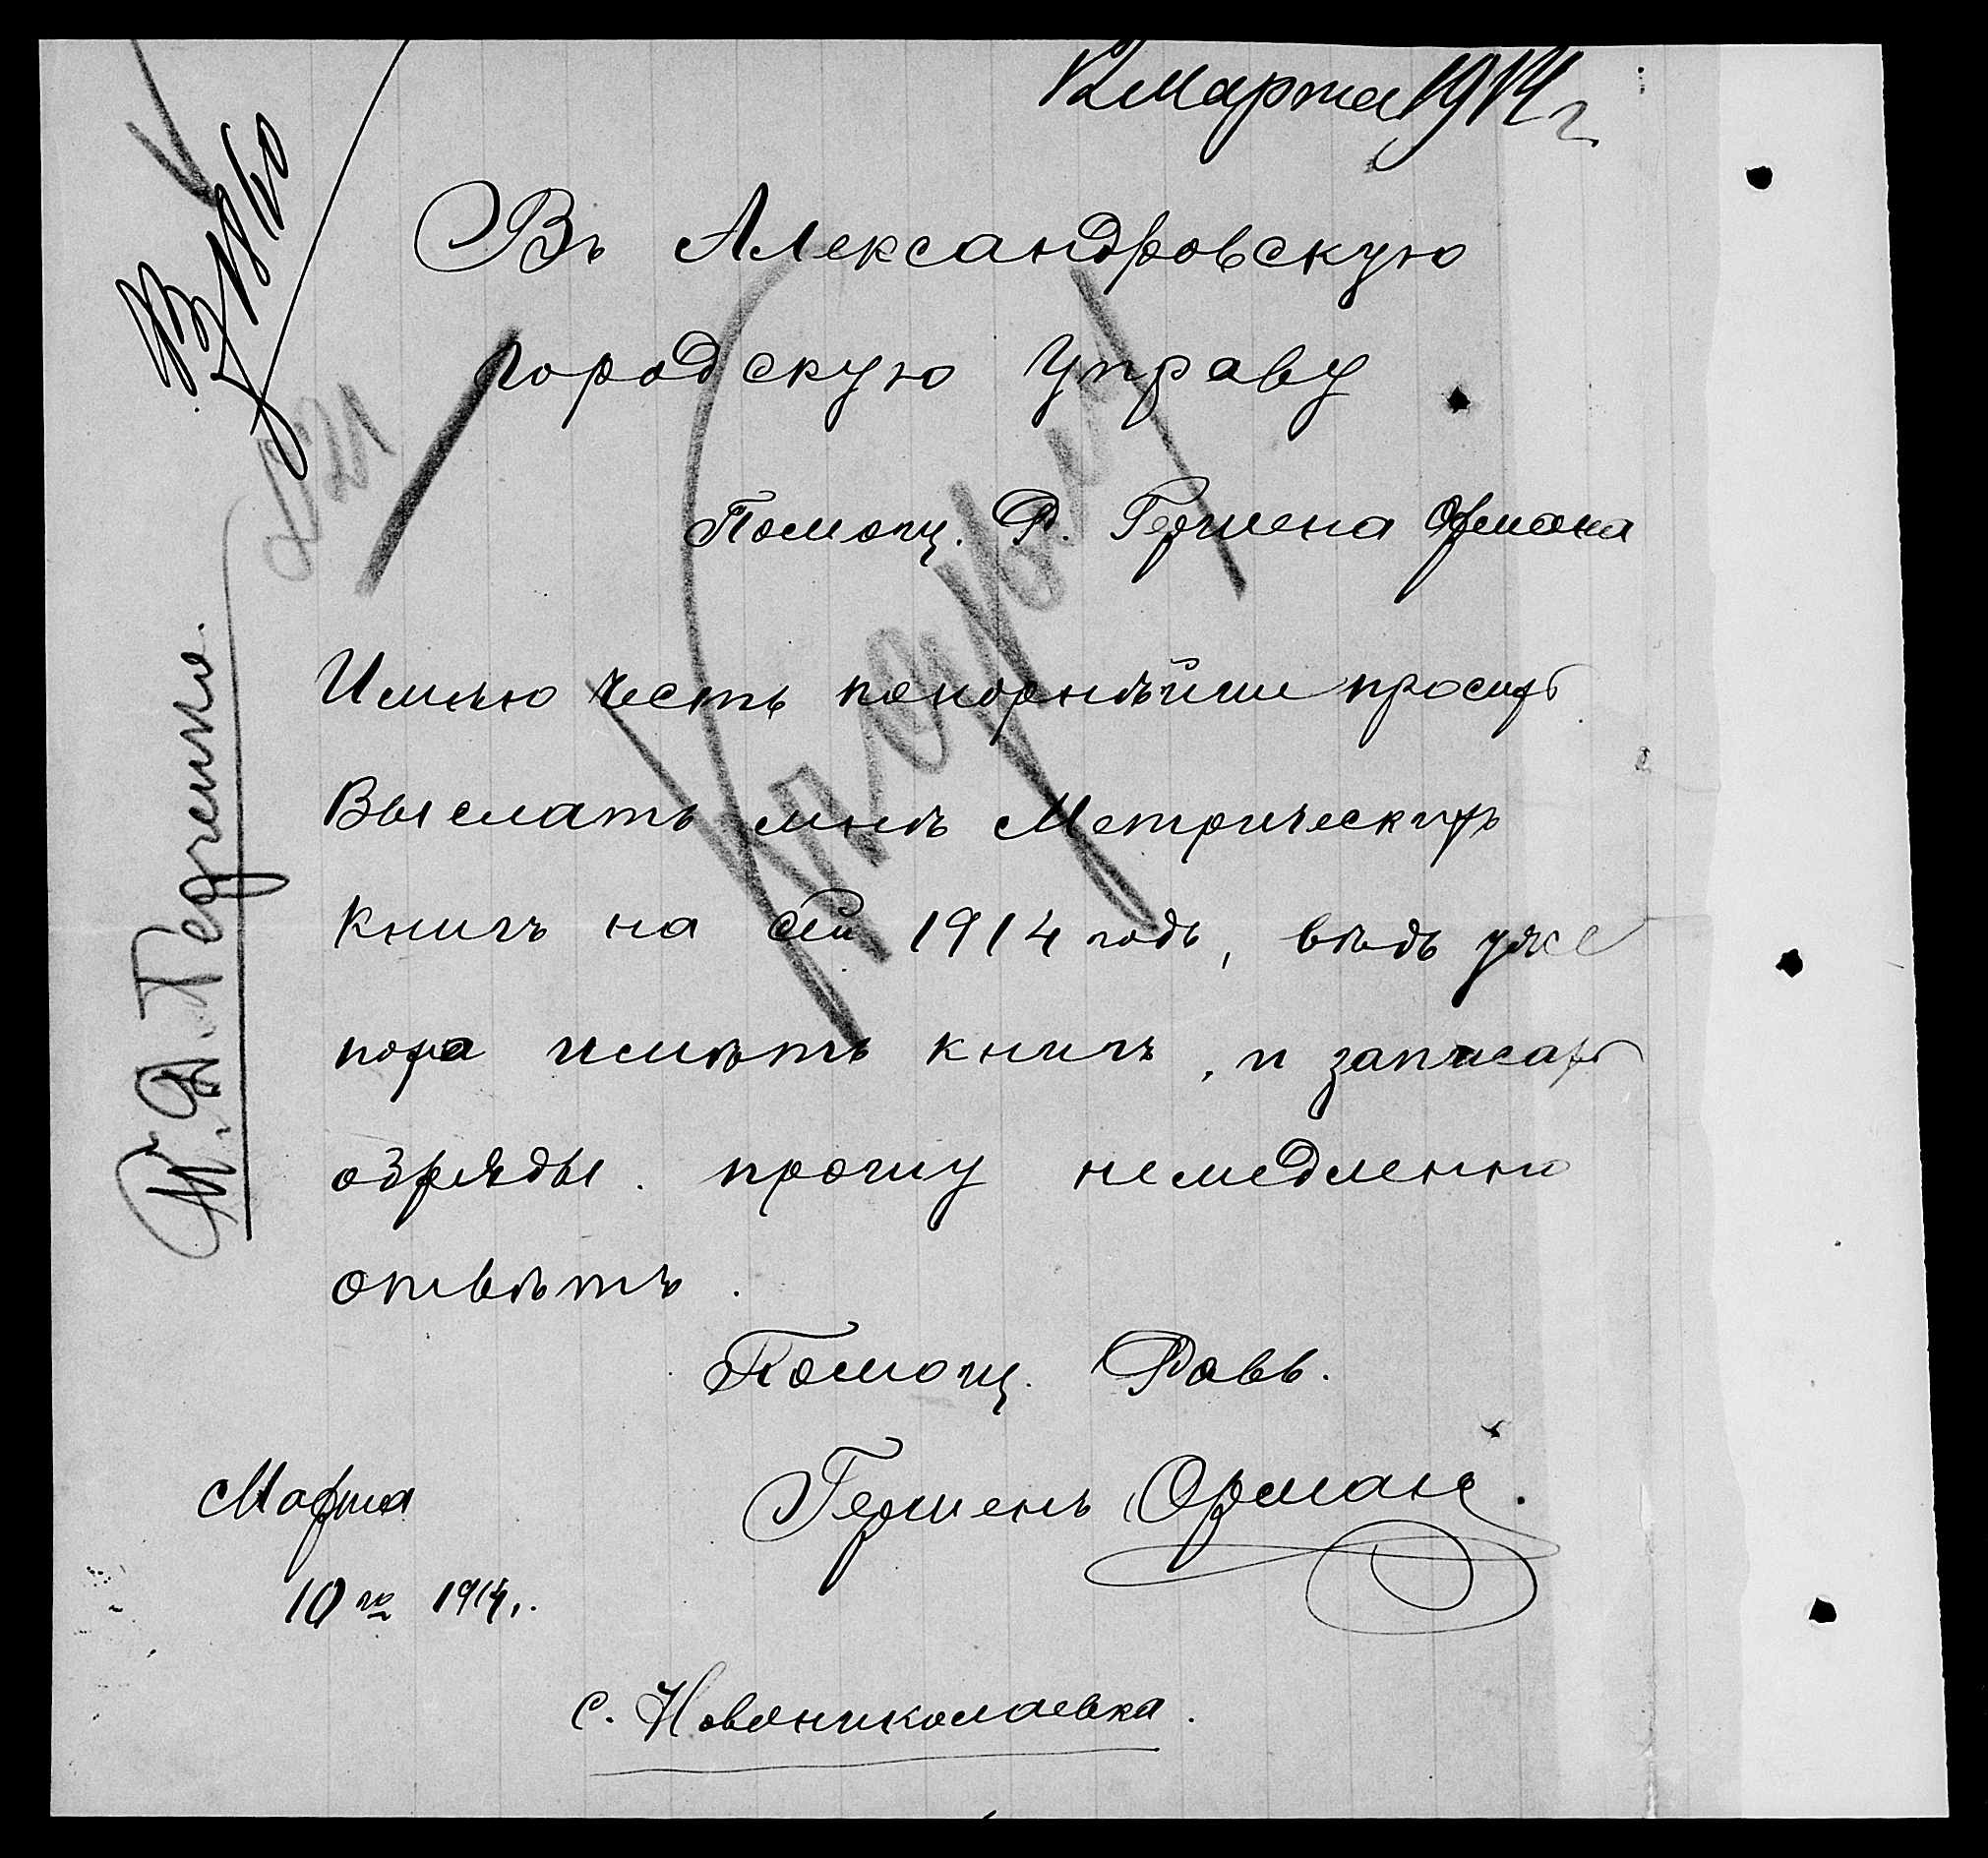 12 Марта 1914 г
Въ Александровскую
городскую управу
Помощ. Р. Гершена Ормана
Имѣю честь покорнѣйши просить
Выслать мнѣ Метрическихъ
книгъ на сей 1914 годъ, вѣдь уже
пора имѣть книгъ, и записать
обряды. прошу немедленно
отвѣтъ.
Помощ. Равв.
Гершенъ Орманъ.
Марта
10 го 1914.
с. Новониколаевка.